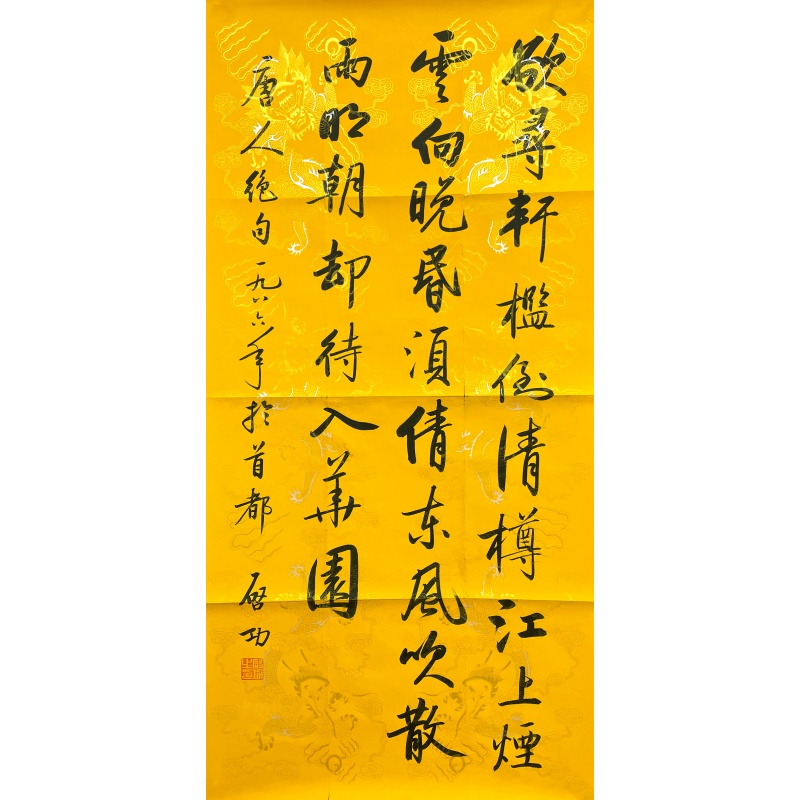 欲尋軒檻倒清樽江上煙
雲向晚昬須倩東風吹散
雨明朝却待入華園
唐人絶句一九八六年於首都
啓功